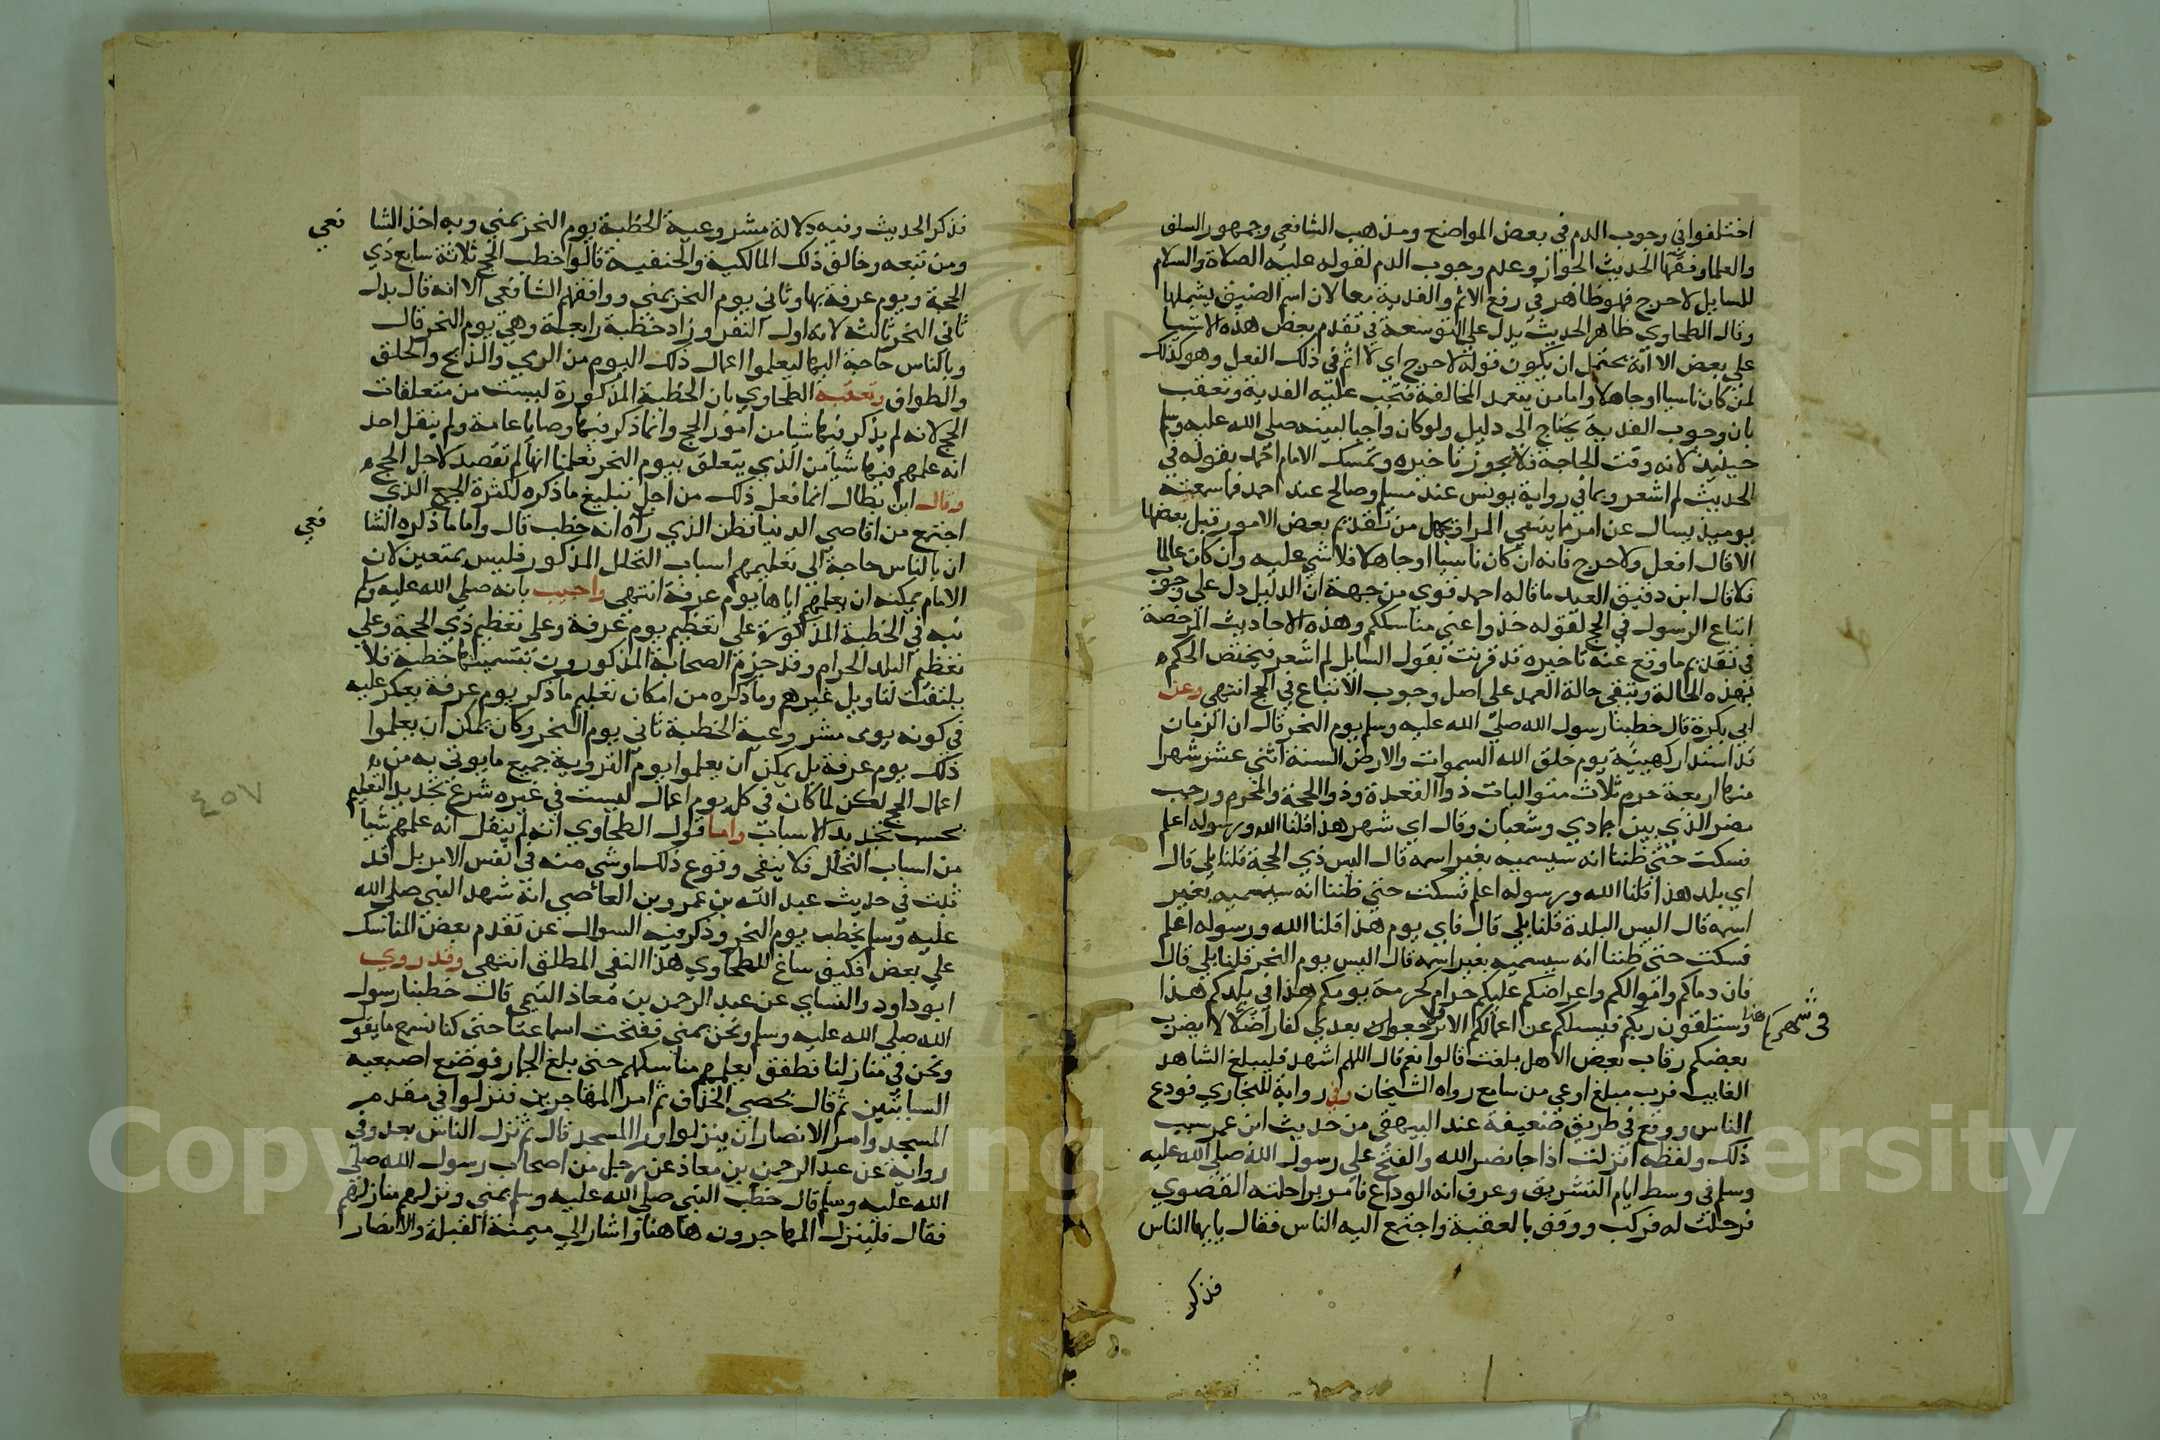 اختلفوا في وجوب الدم في بعض المواضع ومذهب الشافعي وجمهور السلف
والعلما وفقها الحديث الجواز وعدم وجوب الدم لقوله عليه الصلاة والسلام
للسايل لا حرج فهو ظاهر في رفع الاثم والفدية معا لان اسم الضيق يشملها
وقال الطحاوي ظاهر الحديث يدل علي التوسعة في تقدم بعض هذه الاشيا
علي بعض الا انه يحتمل ان يكون قوله لا حرج اي لا اثم في ذلك الفعل وهو كذلك
لمن كان ناسيا او جاهلا واما من يتعمد المخالفة فتجب عليه الفدية وتعقب
بان وجوب الفدية يحتاج الي دليل ولو كان واجبا لبينه صلي الله عليه وسلم
حينيذ لانه وقت الحاجة فلا يجوز تاخيره وتمسك الامام احمد بقوله في
الحديث لم اشعر وبما في رواية يونس عند مسلم وصالح عند احمد فما سمعته
يوميذ يسال عن امر مما ينسي المرا ويجهل من تقديم بعض الامور قبل بعضها
الا قال افعل ولا حرج فانه ان كان ناسيا او جاهلا فلا شي عليه وان كان عالما
فلا قال ابن دقيق العيد ما قاله احمد قوي من جهة ان الدليل دل علي وجوب
اتباع الرسول في الحج لقوله خذوا عني مناسككم وهذه الاحاديث المرخصة
في تقديم ما وقع عنه تاخيره قد قرنت بقول السايل لم اشعر فيختص الحكم
بهذه الحالة وتبقي حالة العمد علي اصل وجوب الاتباع في الحج انتهي وعن
ابي بكرة قال خطبنا رسول الله صلي الله عليه وسلم يوم النحر قال ان الزمان
قد استدار كهييته يوم خلق الله السموات والارض السنة اثني عشر شهرا
منها اربعة حرم ثلاث متواليات ذو القعدة وذو الحجة والمحرم ورجب
مضر الذي بين جمادي وشعبان وقال اي شهر هذا قلنا الله ورسوله اعلم
فسكت حتي ظننا انه سيسميه بغير اسمه قال اليس ذي الحجة قلنا بلي قال
اي بلد هذا قلنا الله ورسوله اعلم فسكت حتي ظننا انه سيسميه بغير
اسمه قال اليس البلدة قلنا بلي قال فاي يوم هذا قلنا الله ورسوله اعلم
فسكت حتي ظننا انه سيسميه بغير اسمه قال اليس يوم النحر قلنا بلي قال
فان دماكم واموالكم واعراضكم عليكم حرام كحرمة يومكم هذا في بلدكم هذا
في شهركم هذا
وستلقون ربكم فيسلكم عن اعمالكم الا فلا ترجعوا بعدي كفارا ضلالا يضرب
بعضكم رقاب بعض الا هل بلغت قالوا نعم قال اللهم اشهد فليبلغ الشاهد
الغايب فرب مبلغ اوعي من سامع رواه الشيخان وفي رواية للبخاري فودع
الناس ووقع في طريق ضعيفة عند البيهقي من حديث ابن عمر سبب
ذلك ولفظه انزلت اذا جا نصر الله والفتح علي رسول الله صلي الله عليه
وسلم في وسط ايام التشريق وعرف انه الوداع فامر براحلته القصوي
فرحلت له فركب ووقف بالعقبة واجتمع اليه الناس فقال يا ايها الناس
فذكر
فذكر الحديث وفيه دلالة مشروعية الخطبة يوم النحر بمني وبه اخذ الشا
فعي
ومن تبعه وخالف ذلك المالكية والحنفية قالوا خطب الحج ثلاثة سابع ذي
الحجة ويوم عرفة بها وثاني يوم النحر بمني ووافقهم الشافعي الا انه قال بدل
ثاني النحر ثالثه لانه اول النفر وزاد خطبة رابعة وهي يوم النحر قال
وبالناس حاجة اليها ليعلموا اعمال ذلك اليوم من الرمي والذبح والحلق
والطواف وتعقبه الطحاوي بان الخطبة المذكورة ليست من متعلقات
الحج لانه لم يذكر فيها شيا من امور الحج وانما ذكر فيها وصايا عامة ولم ينقل احد
انه علمهم فيها شيا من الذي يتعلق بيوم النحر فعلمنا انها لم تقصد لاجل الحج
وقال ابن بطال انما فعل ذلك من اجل تبليغ ما ذكره لكثرة الجمع الذي
اجتمع من اقاصي الدنيا فظن الذي راه انه خطب قال واما ما ذكره الشا
فعي
ان بالناس حاجة الي تعليمهم اسباب التحلل المذكور فليس بمتعين لان
الامام يمكنه ان يعلمهم اياها يوم عرفة انتهي واجيب بانه صلي الله عليه وسلم
نبه في الخطبة المذكورة علي تعظيم يوم عرفة وعلي تعظيم ذي الحجة وعلي
تعظيم البلد الحرام وقد جزم الصحابة المذكورون بتسميتها خطبة فلا
يلتفت لتاويل غيرهم وما ذكره من امكان تعليم ما ذكر يوم عرفة يعكر عليه
في كونه يري مشروعية الخطبة ثاني يوم النحر وكان يمكن ان يعلموا
ذلك يوم عرفة بل يمكن ان يعلموا يوم التروية جميع ما يوتي به من
اعمال الحج لكن لما كان في كل يوم اعمال ليست في غيره شرع تجديد التعليم
بحسب تجديد الاسباب واما قول الطحاوي انه لم ينقل انه علمهم شيا
من اسباب التحلل فلا ينفي وقوع ذلك او شي منه في نفس الامر بل قد
ثبت في حديث عبد الله بن عمرو بن العاصي انه شهد النبي صلي الله
عليه وسلم يخطب يوم النحر وذكر فيه السوال عن تقدم بعض المناسك
علي بعض فكيف ساغ للطحاوي هذا النفي المطلق انتهي وقد روي
ابو داود والنساي عن عبد الرحمن بن معاذ التيمي قال خطبنا رسول
الله صلي الله عليه وسلم ونحن بمني ففتحت اسماعنا حتي كنا نسمع ما يقول
ونحن في منازلنا فطفق يعلمهم مناسكهم حتي بلغ الجمار فوضع اصبعيه
السبابتين ثم قال بحصي الخذف ثم امر المهاجرين فنزلوا في مقدم
المسجد وامر الانصار ان ينزلوا ورا المسجد قال ثم نزل الناس بعد وفي
رواية عن عبد الرحمن بن معاذ عن رجل من اصحاب رسول الله صلي
الله عليه وسلم قال خطب النبي صلي الله عليه وسلم بمني ونزلهم منازلهم
فقال فلينزل المهاجرون هاهنا واشار الي ميمنة القبلة والانصار
٤٥٧